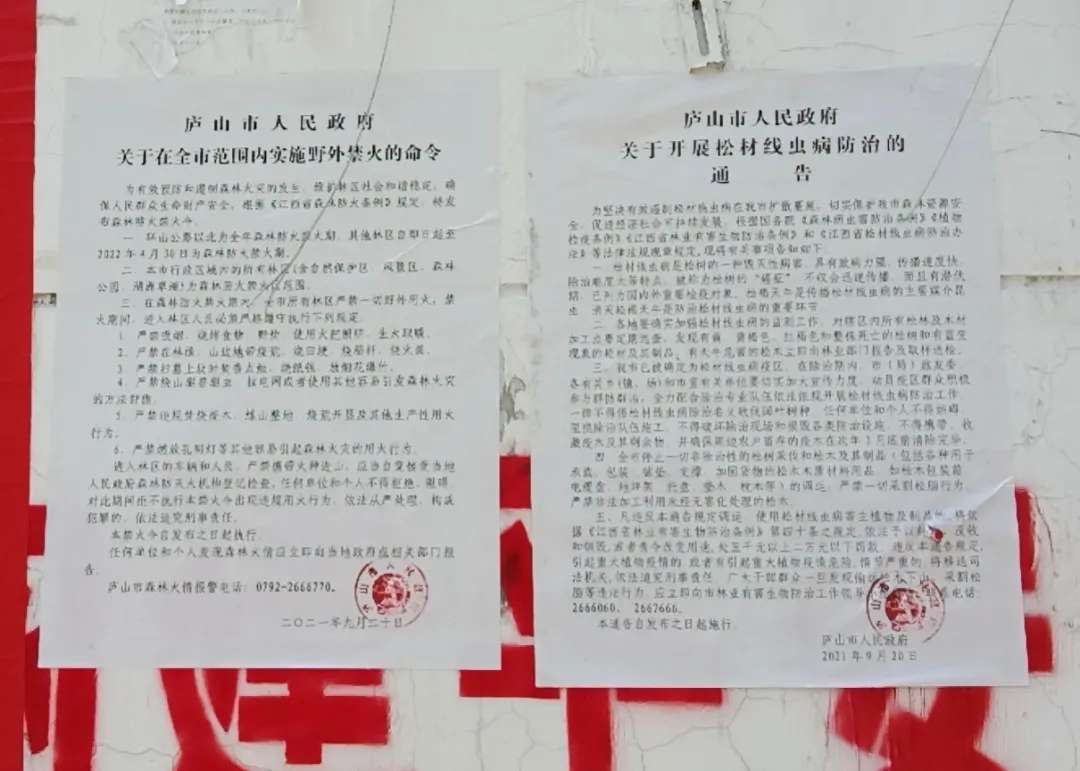 庐山市人民政府
关于在全市范围内实施野外禁火的命令
为有效预防和遏制森林火灾的发生，维护林区社会和谐稳定，确
保人民群众生命财产安全，根据《江西省森林防火条例》规定，特发
布森林防火禁火令。
一、环山公路以北为全年森林防火禁火期，其他林区自即日起至
2022年4月30日为森林防火禁火期。
二、本市行政区域内的所有林区(含自然保护区、风景区、森林
公园、湖洲草洲)为森林防火禁火区范围。
三、在森林防火禁火期内，全市所有林区严禁一切野外用火。禁
火期间，进入林区人员必须严格遵守执行下列规定：
1、严禁吸烟、烧烤食物、野炊、使用火把照明、生火取暖。
2、严禁在林缘、山边地带烧荒、烧田埂、烧秸秆、烧火粪。
3、严禁在墓上坟时焚香点烛、烧纸钱、放烟花爆竹。
4、严禁烧山驱兽狩猎、拉电网或者使用其他容易引发森林火灾
的方法狩猎。
5、严禁违规焚烧疫木、炼山整地、烧荒开垦及其他生产性用火
行为。
6、严禁燃放孔明灯等其他容易引起森林火灾的用火行为。
进入林区的车辆和人员，严禁携带火种进山，应当自觉接受当地
人民政府森林防灭火机构登记检查，任何单位和个人不得拒绝、阻碍。
对此期间拒不执行本禁火令出现违规用火行为，依法从严处理，构成
犯罪的，依法追究刑事责任。
本禁火令自发布之日起执行。
任何单位和个人发现森林火情应立即向当地政府或相关部门报
告。
庐山市森林火情报警电话：0792-2666770。
二〇二一年九月二十日
庐山市人民政府
关于开展松材线虫病防治的
通 告
为坚决有效遏制松材线虫病在我市扩散蔓延，切实保护我市森林资源安
全，促进经济社会可持续发展，根据国务院《森林病虫害防治条例》《植物
检疫条例》《江西省林业有害生物防治条例》和《江西省松材线虫病防治办
法》等法律法规规章规定，现将有关事项告知如下：
一、松材线虫病是松树的一种毁灭性病害，具有致病力强、传播速度快、
防治难度大等特点，被称为松树的“癌症”，不仅会迅速传播，而且有潜伏
期，已列为国内外重要检疫对象。松褐天牛是传播松材线虫病的主要媒介昆
虫，消灭松褐天牛是防治松材线虫病的重要环节。
二、各地要确实加强松材线虫病的监测工作，对辖区内所有松林及木材
加工点要定期巡查，发现有黄、黄褐色、红褐色和整株死亡的松树和有蓝变
现象的松材及其制品、有天牛危害的松木立即向林业部门报告及取样送检。
三、我市已被确定为松材线虫病疫区，在除治期内，市（局）派发委、
各有关乡(镇、场)和市直有关单位要切实加大宣传力度，动员疫区群众积极
参与群防群治，全力配合除治专业队伍依法依规开展松材线虫病防治工作，
一律不得借松材线虫病除治名义砍伐阔叶树种，任何单位和个人不得妨碍、
阻挠除治队伍施工，不得破坏除治现场和损毁各类防治设施，不得携带、收
藏疫木及其剩余物，并确保周边农户留存的疫木在次年1月底前清除完毕。
四、全市停止一切非除治性的松树采伐和松木及其制品（包括各种用于
承载、包装、铺垫、支撑、加固货物的松木木质材料用品，如松木包装箱、
电缆盘、地坪架、托盘、垫木、枕木等）的调运，严禁一切采割松脂行为，
严禁非法加工利用未经无害化处理的松木。
五、凡违反本通告规定调运、使用松材线虫病寄主植物及制品的，将依
据《江西省林业有害生物防治条例》第四十条之规定，依法予以
和销毁，或者责令改变用途，处五千元以上二万元以下罚款；违反本通告规定，
引起重大植物疫情的，或者有引起重大植物疫情危险，情节严重的，将移送司
法机关，依法追究刑事责任。广大干部群众一旦发现偷 下山、采割松
脂等违法行为，应立即向市林业有害生物防治工作领导 电话：
2666060、2667666。
本通告自发布之日起施行。
庐山市人民政府
2021年9月20日